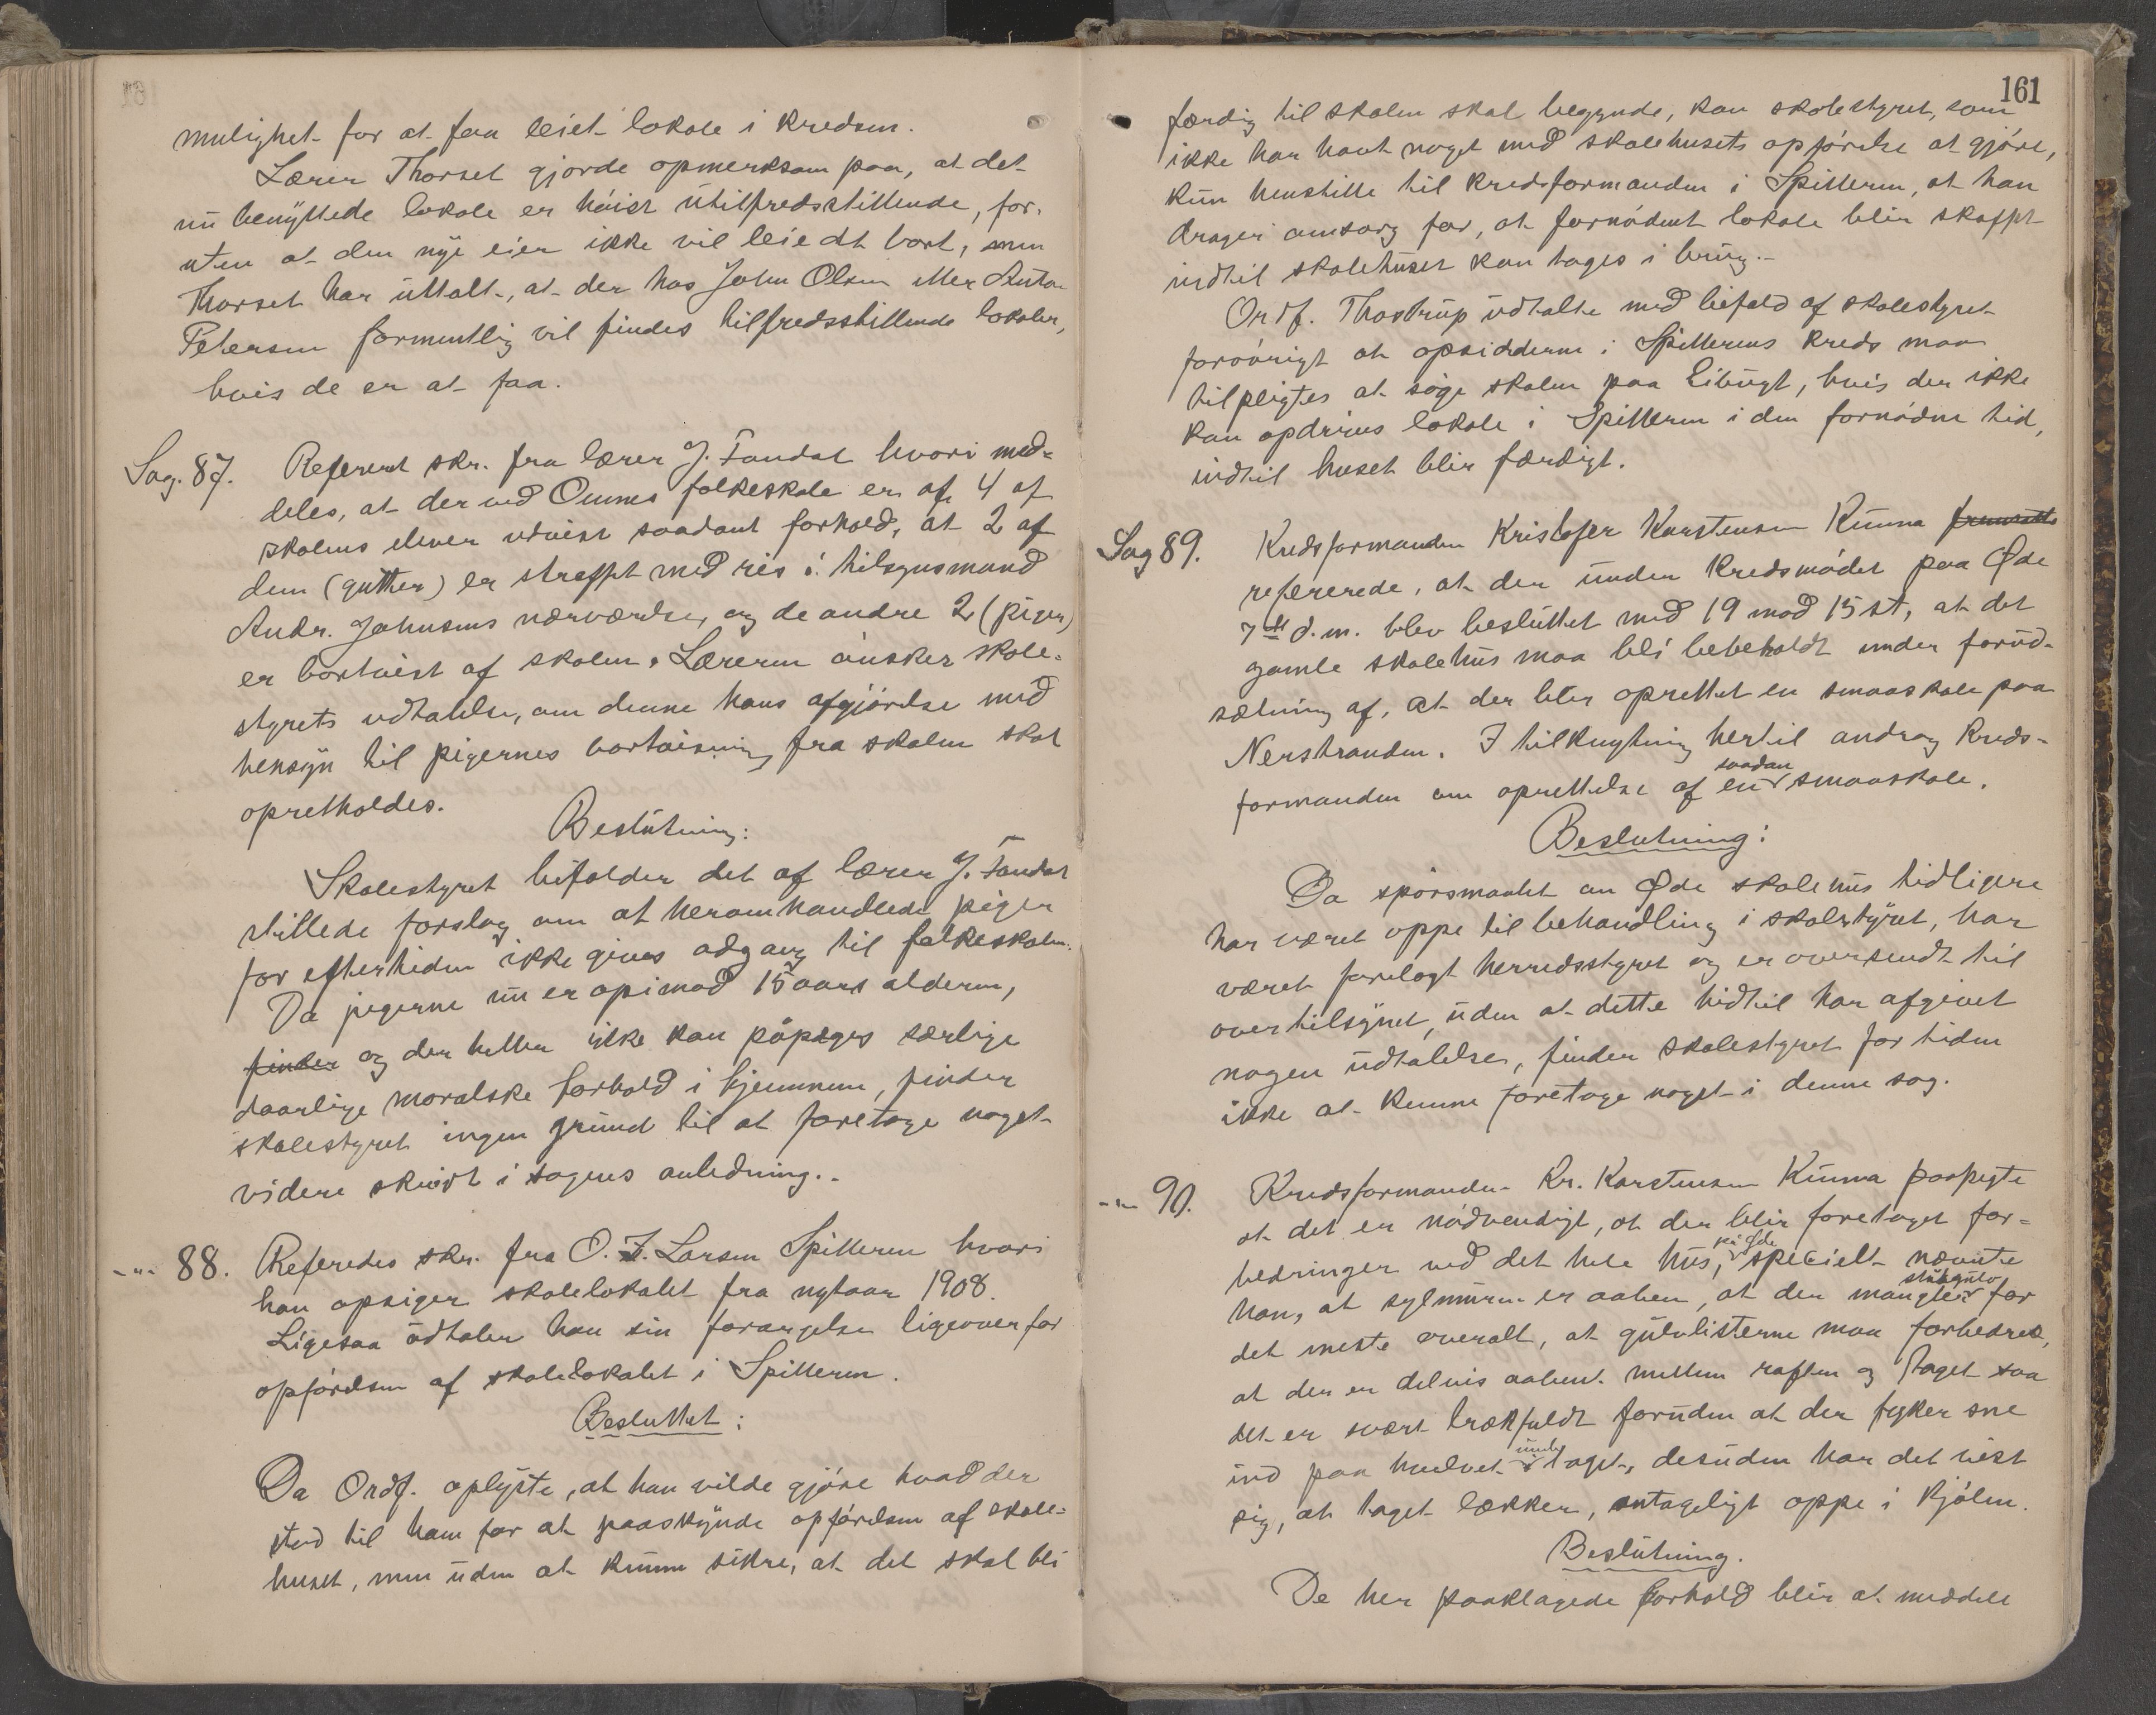 mulighet for at faa leiet lokale i kredsen.
Lærer Thorset gjorde opmerksom paa, at det
nu benyttede lokale er høist utilfredsstillende, for-
uten at den nye eier ikke vil leie dt bort, men
Thorset har uttalt, at der hos John Olsen eller Anton
Petersen formentlig vil findes tilfredsstillende lokaler,
hvis de er at faa.
Sag. 87. Referert skr. fra lærer J. Tandal hvori med-
deles, at der ved Onnes folkeskole er af 4 af
skolens elever utvist saadant forhold, at 2 af
dem (gutter) er straffet med ris i tilsynsmand
Andr. Johnsens nærværelse, og de andre 2 (piger)
er bortvist af skolen. Læreren ønsker skole-
styrets udtalelse, om denne hans afgjørelse med
hensyn til pigernes bortvisning fra skolen skal
opretholdes.
Beslutning:
Skolestyret bifalder det af lærer J. Tandal
stillede forslag om at heromhandlede piger
for eftertiden ikke gives adgang til folkeskolen.
Da pigerne nu er opimod 15 aars alderen,
finder og der heller ikke kan påpeges særlige
daarlige moralske forhold i hjemmene, finder
skolestyret ingen grund til at foretage noget
videre skridt i sagens anledning.
-"- 88. Referedes skr. fra O. Larsen Spilleren hvori
han opsiger skolelokalet fra nytaar 1908.
Ligesaa udtaler han sin forargelse ligeoverfor
opførelsen af skolelokalet i Spilleren.
Besluttet:
Da Ordf. oplyste, at han vilde gjøre hvad der
stod til ham for at paaskynde opførelsen af skole-
huset, men uden at kunne sikre, at det skal bli
161
færdig til skolen skal begynde, kan skolestyret, som
ikke har havt noget med skolehusets opførelse at gjøre,
kun henstille til kredsformanden i Spilleren, at han
drager omsorg for, at fornødent lokale blir skaffet
indtil skolehuset kan tages i brug.-
Ordf. Thostrup udtalte med bifald af skolestyret
forøvrigt at opsidderne i Spillerens kreds maa
tilpligtes at søge skolen paa Libugt, hvis der ikke
kan opdrives lokale i Spilleren i den fornødne tid,
indtil huset blir færdigt.
Sag 89. Kredsformanden Kristofer Karstensen Kunna fremsatte
refererede, at der under kredsmødet paa Øde
7de d.m. blev besluttet med 19 mod 15 st, at det
gamle skolehus maa bli bebeholdt under forud-
sætning af, at der blir oprettet en smaaskole paa
Nerstranden. I tilknytning hertil androg kreds-
formanden om oprettelse af en saadan smaaskole.
Beslutning:
Da spørsmaalet om Øde skolehus tidligere
har været oppe til behandling i skolestyret, har
været forelagt herredsstyret og er oversendt til
overtilsynet, uden at dette hidtil har afgivet
nogen udtalelse, finder skolestyret for tiden
ikke at kunne foretage noget i denne sag.
-"- 90. Kredsformanden Kr. Karstensen Kunna paapegte
at det er nødvendigt, at der blir foretaget for-
bedringer ved det hele hus, på Øde specielt nævnte
han, at sylmuren er aaben, at der mangler stubgulv for
det meste overalt, at gulvlisterne maa forbedres,
at der er delvis aabent mellem raften og taget saa
det er svært trækfuldt foruden at der fyker sne
ind paa hvelvet under taget, desuden har det vist
sig, at taget lækker, antageligt oppe i kjølen.
Beslutning.
De her paaklagede forhold blir at meddele